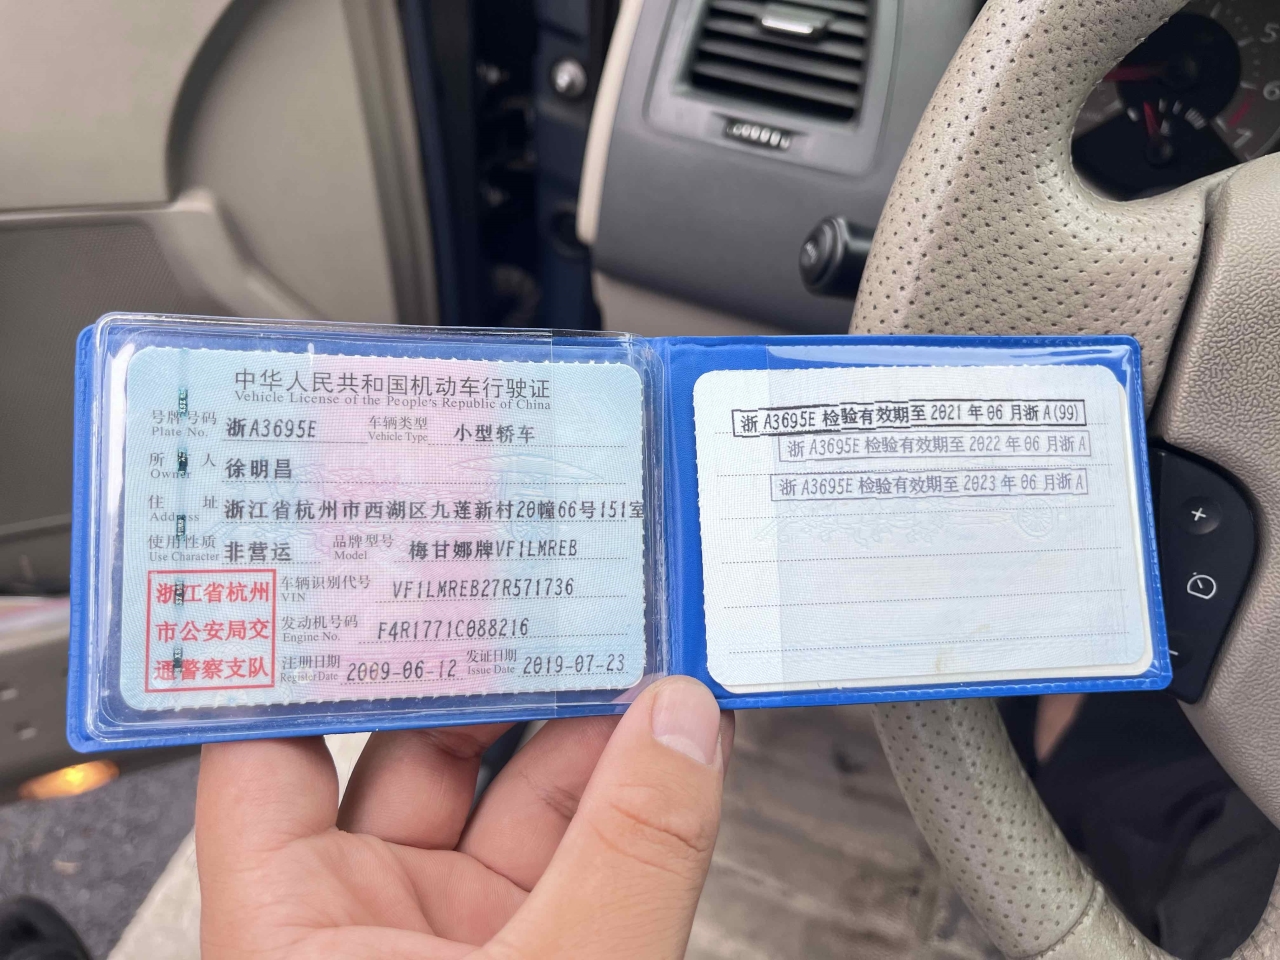 中华人民共和国机动车行驶证
Vehicle License of the People's Republic of China
号牌号码 浙A3695E 车辆类型 小型轿车
Plate No. Vehicle Type
所有人 徐明昌
Owner
住址 浙江省杭州市西湖区九莲新村20幢66号151室
Address
使用性质 非营运 品牌型号 梅甘娜牌VF1LMREB
Use Character Model
浙江省杭州
市公安局交
通警察支队
车辆识别代号 VF1LMREB27R571736
VIN
发动机号码 F4R1771C088216
Engine No.
注册日期 2009-06-12 发证日期 2019-07-23
Register Date Issue Date
浙A3695E检验有效期至2021年06月浙A(99)
浙A3695E检验有效期至2022年06月浙A
浙A3695E检验有效期至2023年06月浙A
5
6